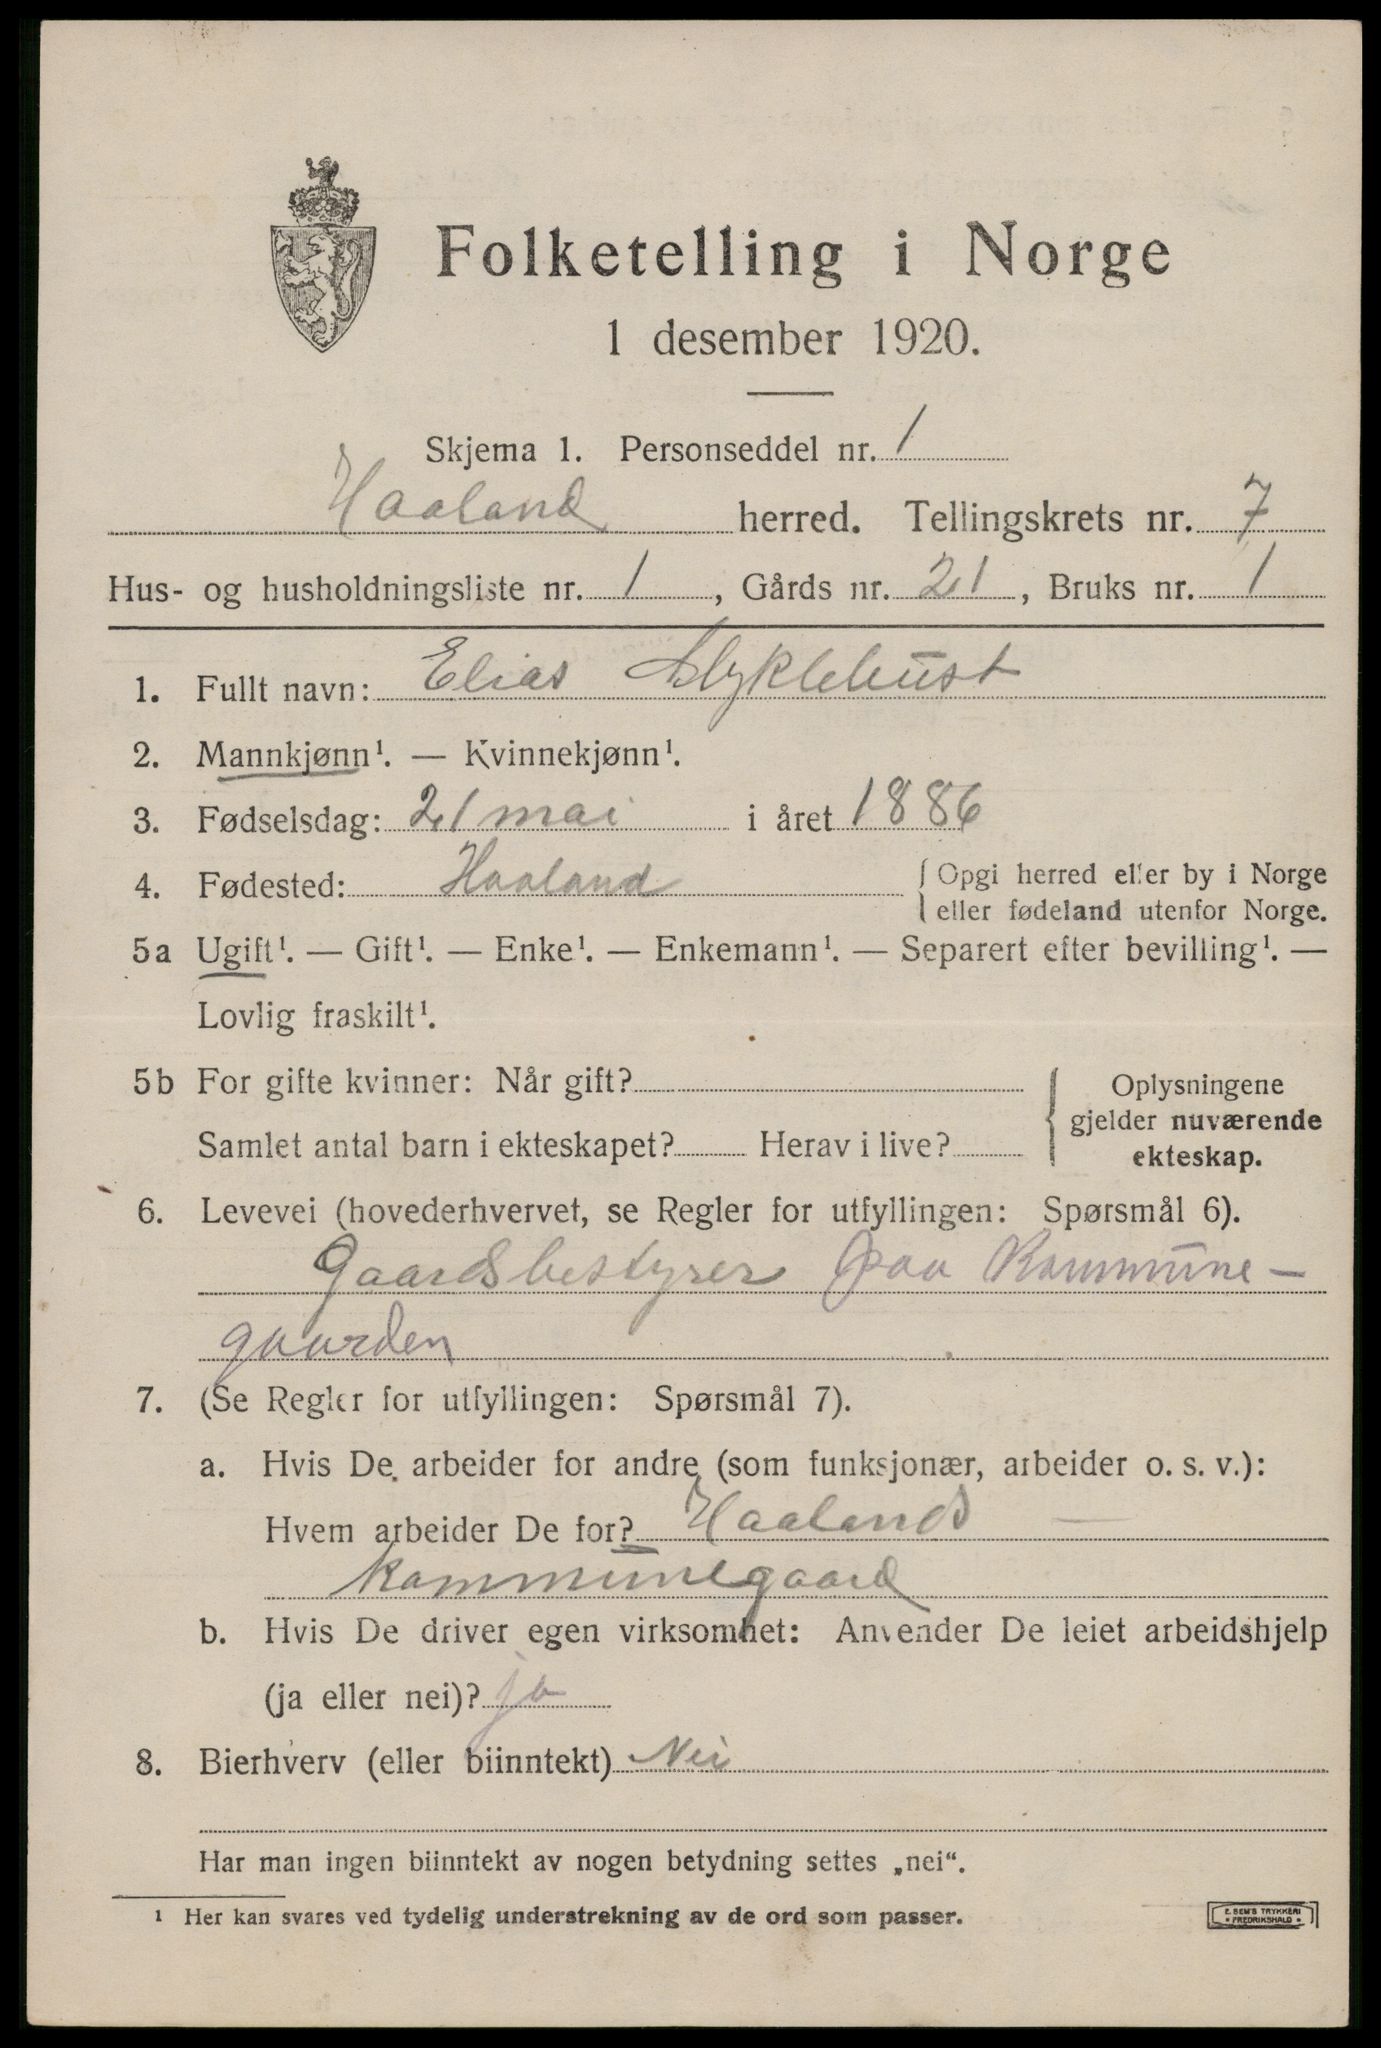 Folketelling i Norge
1 desember 1920.
Skjema 1. Personseddel nr. 1
Haaland herred. Tellingskrets nr. 7
Hus- og husholdningsliste nr. 1, Gårds nr. 21, Bruks nr. 1
1. Fullt navn: Elias Myklebust
2. Mannkjønn¹. — Kvinnekjønn¹.
3. Fødselsdag: 21 mai i året 1886
4. Fødested: Haaland { Opgi herred eller by i Norge
eller fødeland utenfor Norge.
5a Ugift¹. — Gift¹. — Enke¹. — Enkemann¹. — Separert efter bevilling¹. —
Lovlig fraskilt¹.
5b For gifte kvinner: Når gift? { Oplysningene
gjelder nuværende
Samlet antal barn i ekteskapet? Herav i live?
ekteskap.
6. Levevei (hovederhvervet, se Regler for utfyllingen: Spørsmål 6).
Gaardsbestyrer paa Kommune-
gaarden
7. (Se Regler for utfyllingen: Spørsmål 7).
a. Hvis De arbeider for andre (som funksjonær, arbeider o. s. v.):
Hvem arbeider De for? Haalands —
Kommunegaard
b. Hvis De driver egen virksomhet: Anvender De leiet arbeidshjelp
(ja eller nei)? ja
8. Bierhverv (eller biinntekt) Nei
Har man ingen biinntekt av nogen betydning settes „nei“.
¹ Her kan svares ved tydelig understrekning av de ord som passer.
E. SEM'S TRYKKERI
FREDRIKSHALD